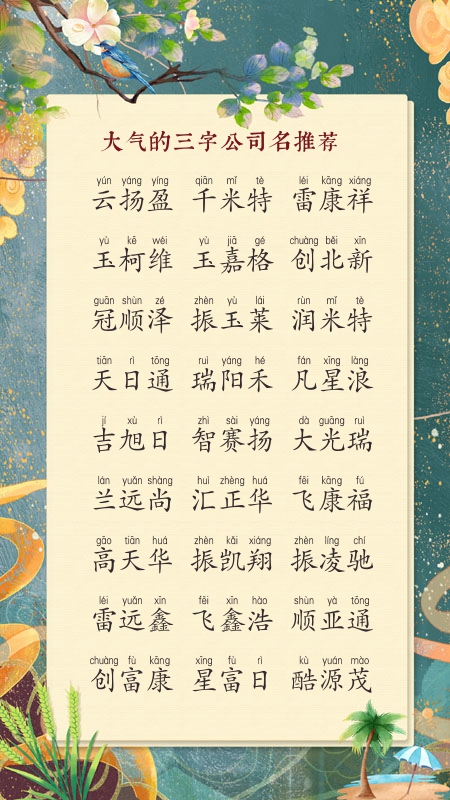 大气的三字公司名推荐
yún yáng yíng qiān mǐ tè léi kāng xiáng
云扬盈 千米特 雷康祥
yù kē wéi yù jiā gé chuàng běi xīn
玉柯维 玉嘉格 创北新
guān shùn zé zhèn yù lái rùn mǐ tè
冠顺泽 振玉莱 润米特
tiān rì tōng ruì yáng hé fán xīng làng
天日通 瑞阳禾 凡星浪
jí xù rì zhì sài yáng dà guāng ruì
吉旭日 智赛扬 大光瑞
lán yuǎn shàng huì zhèng huá fēi kāng fú
兰远尚 汇正华 飞康福
gāo tiān huá zhèn kǎi xiáng zhèn líng chí
高天华 振凯翔 振凌驰
léi yuǎn xīn fēi xīn hào shùn yà tōng
雷远鑫 飞鑫浩 顺亚通
chuàng fù kāng xīng fù rì kù yuán mào
创富康 星富日 酷源茂